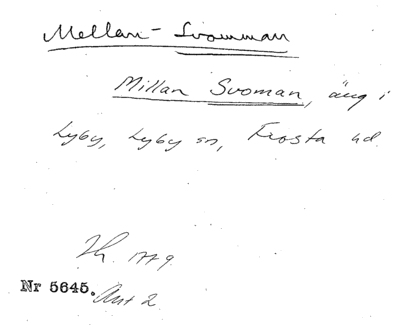 Mellan-Svomman
Millan Svoman, äng i
Lyby, Lyby sn, Frosta hd.
1779
Nr 5645. Akt 2